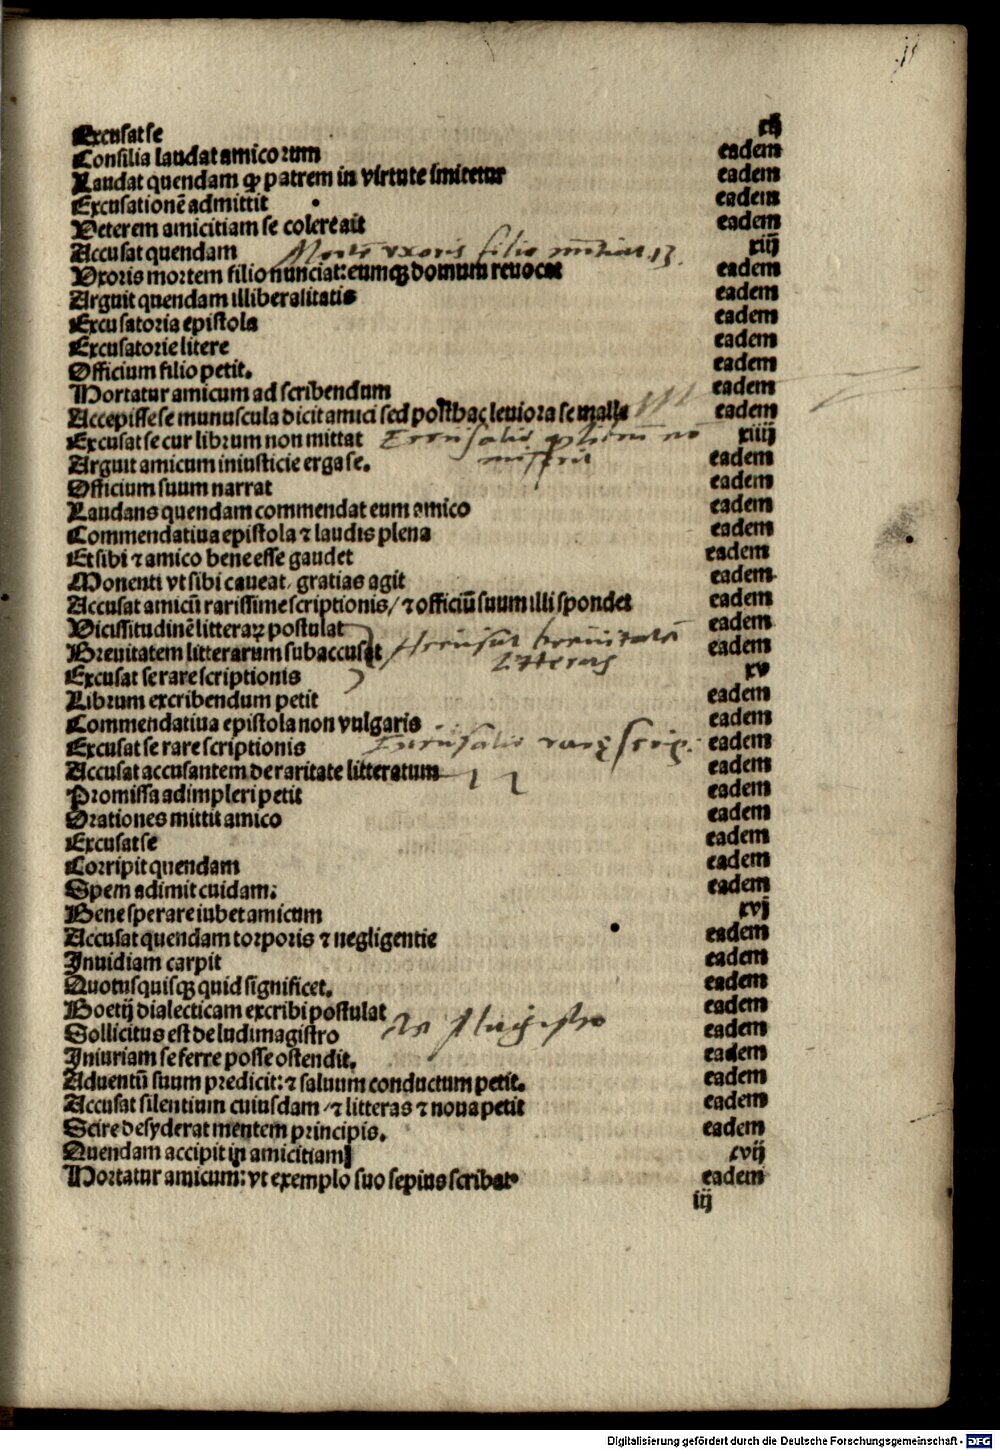 Excusat se xij
Consilia laudat amicorum eadem
Laudat quendam ꝙ patrem in virtute imitetur eadem
Excusationē admittit eadem
Veterem amicitiam se colere ait eadem
Accusat quendam xiij
Vxoris mortem filio nunciat: eumqꝫ domum reuocat eadem
Arguit quendam illiberalitatis eadem
Excusatoria epistola eadem
Excusatorie litere eadem
Officium filio petit. eadem
Hortatur amicum ad scribendum eadem
Accepisse se munuscula dicit amici sed posthac leuiora se malle eadem
Excusat se cur librum non mittat xiiij
Arguit amicum iniusticie erga se. eadem
Officium suum narrat eadem
Laudans quendam commendat eum amico eadem
Commendatiua epistola ⁊ laudis plena eadem
Et sibi ⁊ amico bene esse gaudet eadem
Monenti vt sibi caueat/ gratias agit eadem
Accusat amicū rarissime scriptionis/ ⁊ officiū suum illi spondet eadem
Vicissitudinē litteraꝝ postulat eadem
Breuitatem litterarum subaccusat eadem
Excusat se rare scriptionis xv
Librum excribendum petit eadem
Commendatiua epistola non vulgaris eadem
Excusat se rare scriptionis eadem
Accusat accusantem de raritate litteratum eadem
Promissa adimpleri petit eadem
Orationes mittit amico eadem
Excusat se eadem
Corripit quendam eadem
Spem adimit cuidam: eadem
Bene sperare iubet amicum xvj
Accusat quendam torporis ⁊ negligentie eadem
Inuidiam carpit eadem
Quotusquisqꝫ quid significet. eadem
Boetij dialecticam excribi postulat eadem
Sollicitus est de ludimagistro eadem
Iniuriam se ferre posse ostendit. eadem
Aduentū suum predicit: ⁊ saluum conductum petit. eadem
Accusat silentium cuiusdam/ ⁊ litteras ⁊ noua petit eadem
Scire desyderat mentem principis. eadem
Quendam accipit in amicitiam xvij
Hortatur amicum: vt exemplo suo sepius scribat eadem
iij
Digitalisierung gefördert durch die Deutsche Forschungsgemeinschaft - DFG